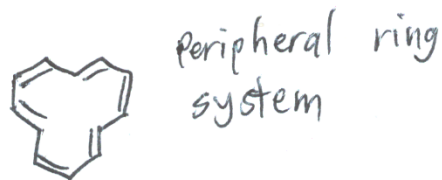 peripheral ring
system